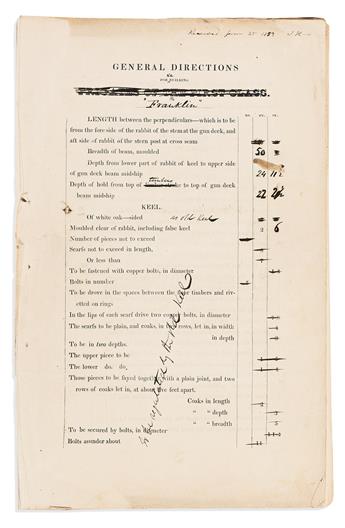 Received June 25 1853
GENERAL DIRECTIONS
FOR BUILDING
"Franklin"
NO. FT. IN.
LENGTH between the perpendiculars—which is to be
from the fore side of the rabbit of the stem at the gun deck, and
aft side of rabbit of the stern post at cross seam
Breadth of beam, moulded 50
Depth from lower part of rabbit of keel to upper side
of gun deck beam midship 24 11½
timbers
Depth of hold from top of to top of gun deck
beam midship 22
KEEL.
Of white oak—sided as old Keel
Moulded clear of rabbit, including false keel 2 6
Number of pieces not to exceed
Scarfs not to exceed in length,
Or less than
To be fastened with copper bolts, in diameter
Bolts in number
To be drove in the spaces between the floor timbers and riv-
etted on rings
In the lips of each scarf drive two copper bolts, in diameter
The scarfs to be plain, and coaks, in two rows, let in, in width
in depth
To be in two depths.
The upper piece to be
The lower do. do.
Those pieces to be fayed together with a plain joint, and two
rows of coaks let in, at about five feet apart.
Coaks in length
" " depth
" " breadth
To be secured by bolts, in diameter
Bolts asunder about
to be regulated by the old Keel